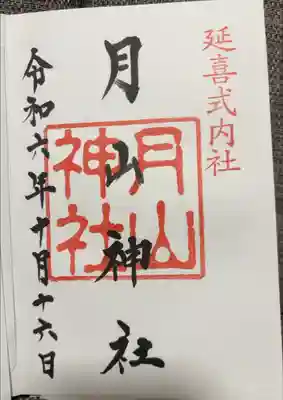 延喜式内社
月山神社
月山神社
令和六年十月十六日